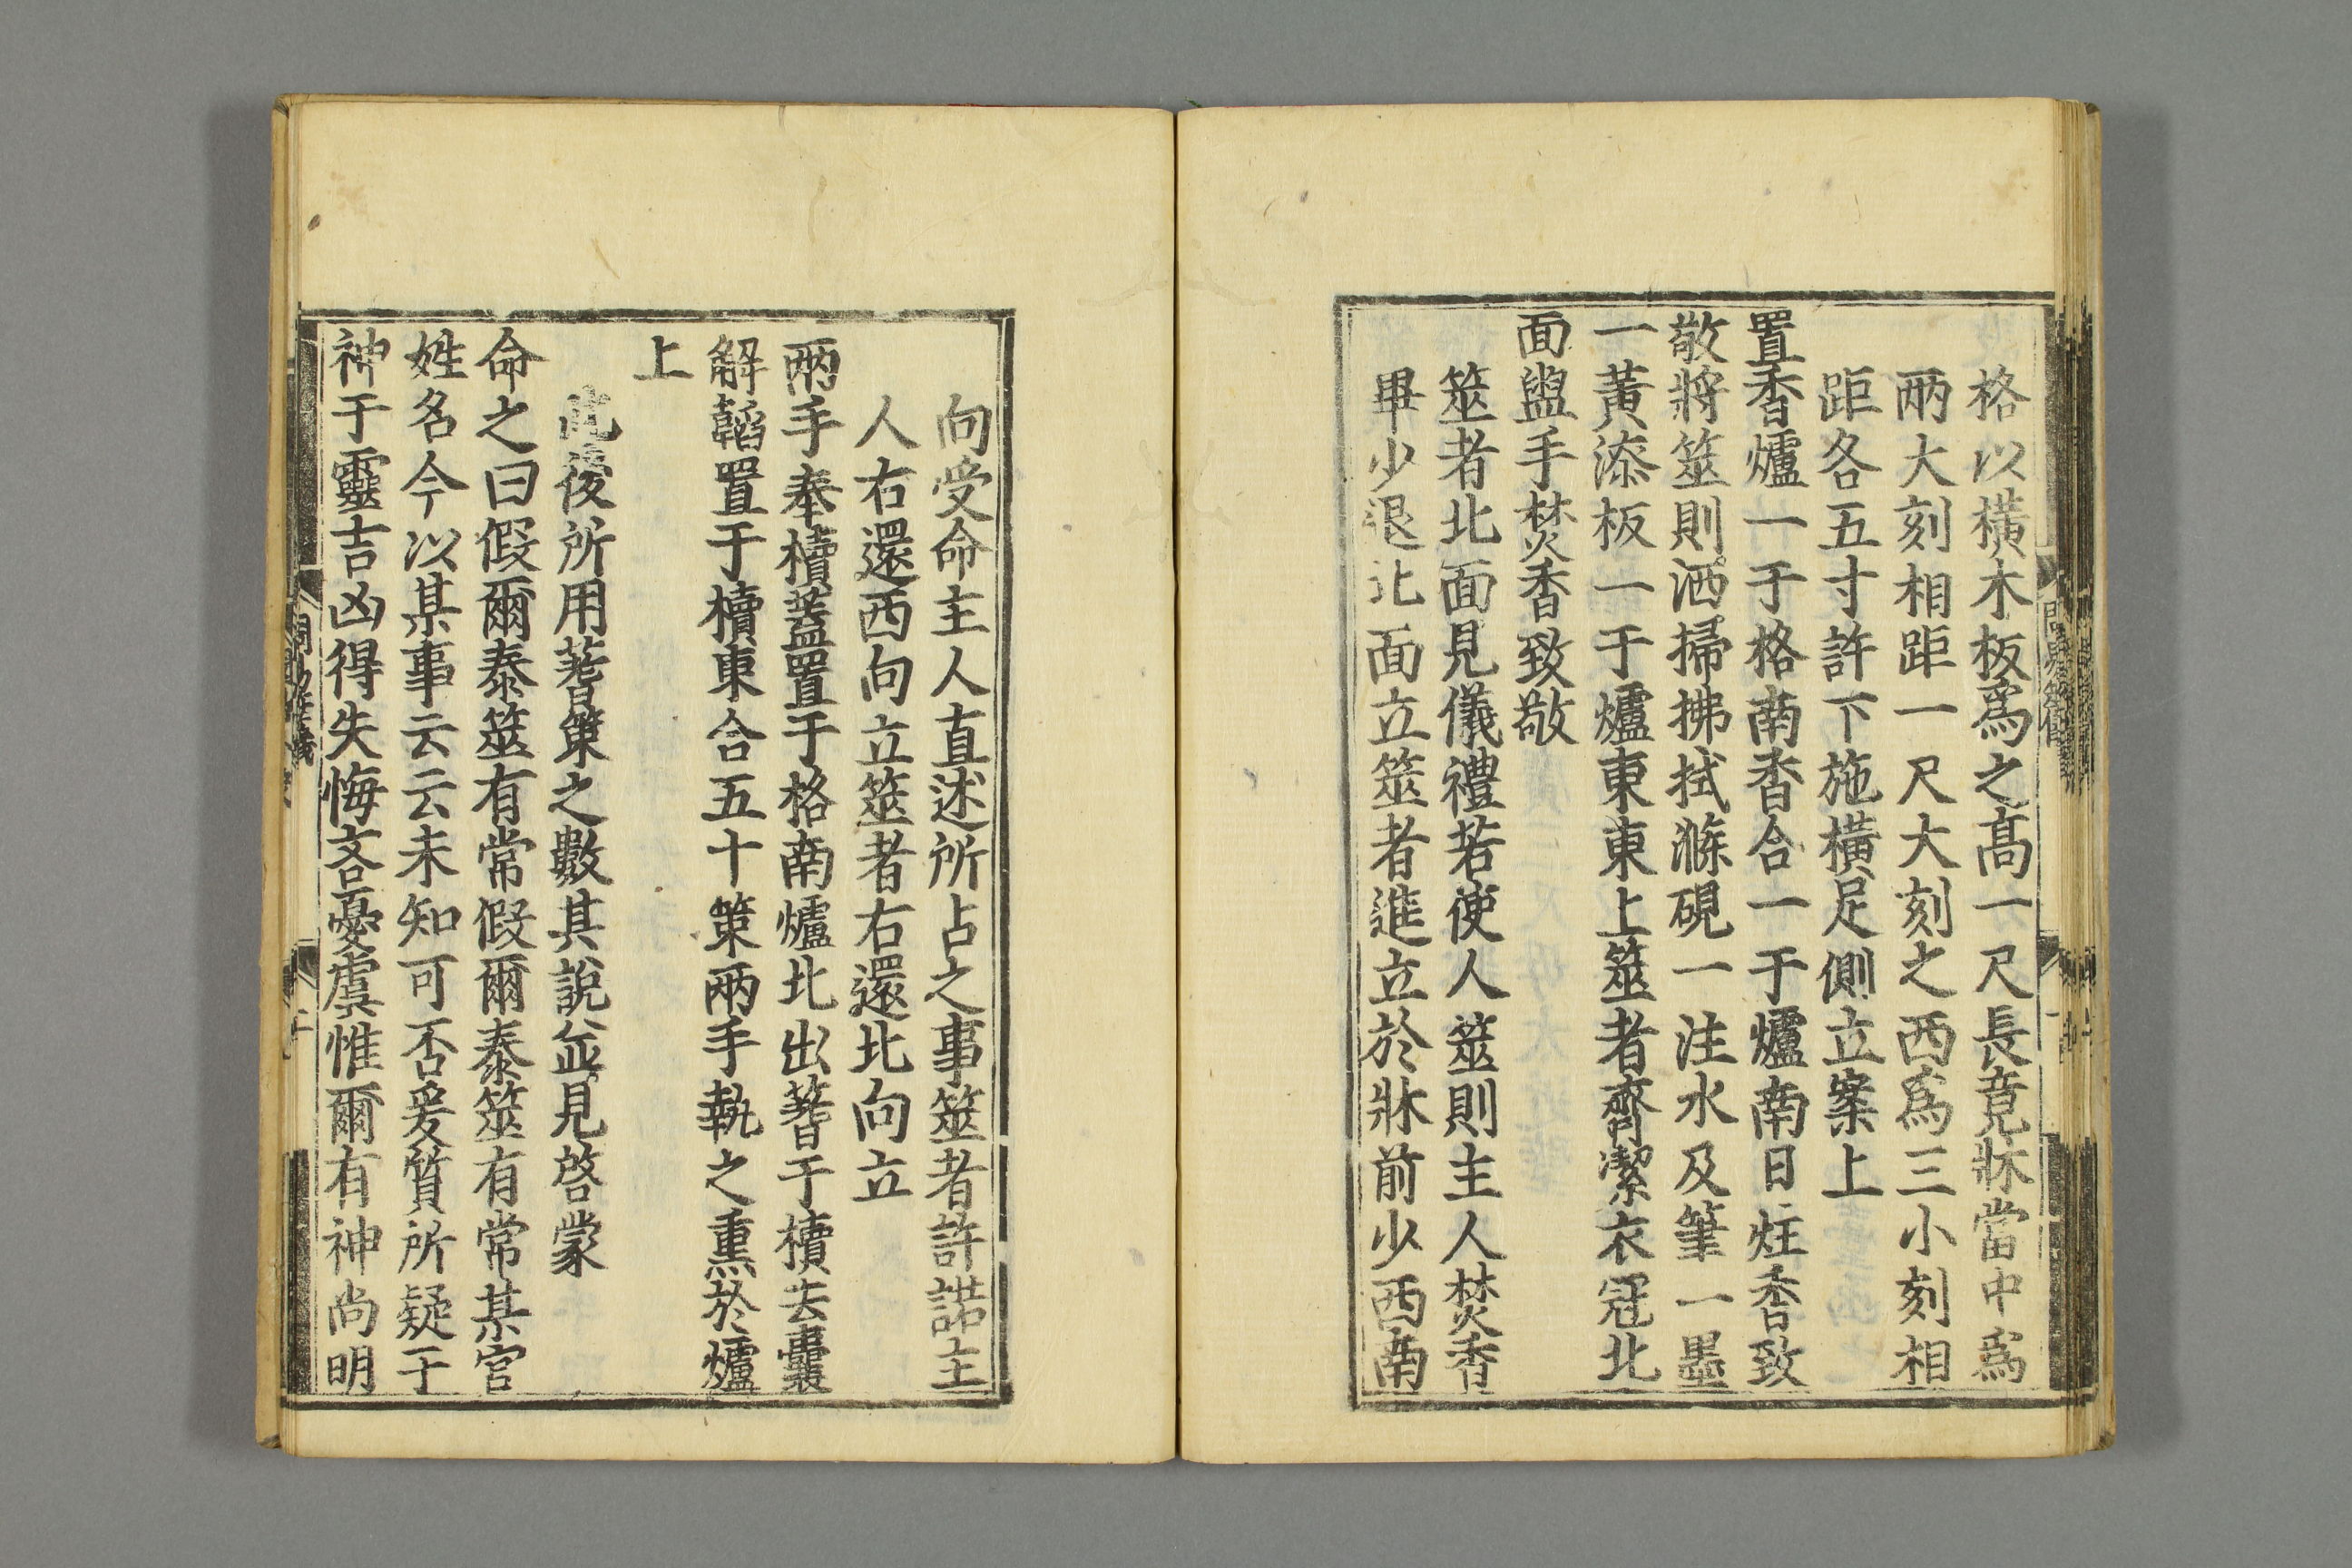 格以橫木板爲之高一尺長竟牀當中爲
兩大刻相距一尺大刻之西爲三小刻相
距各五寸許下施橫足側立案上
置香爐一于格南香合一于爐南日炷香致
敬將筮則洒掃拂拭滌硯一注水及筆一墨
一黃漆板一于爐東東上筮者齊潔衣冠北
面盥手焚香致敬
筮者北面見儀禮若使人筮則主人焚香
畢少退北面立筮者進立於牀前少西南
向受命主人直述所占之事筮者許諾主
人右還西向立筮者右還北向立
兩手奉櫝蓋置于格南爐北出蓍于櫝去囊
解韜置于櫝東合五十策兩手執之熏於爐
上
此後所用蓍策之數其說並見啓蒙
命之曰假爾泰筮有常假爾泰筮有常某官
姓名今以某事云云未知可否爰質所疑于
神于靈吉凶得失悔吝憂虞惟爾有神尚明